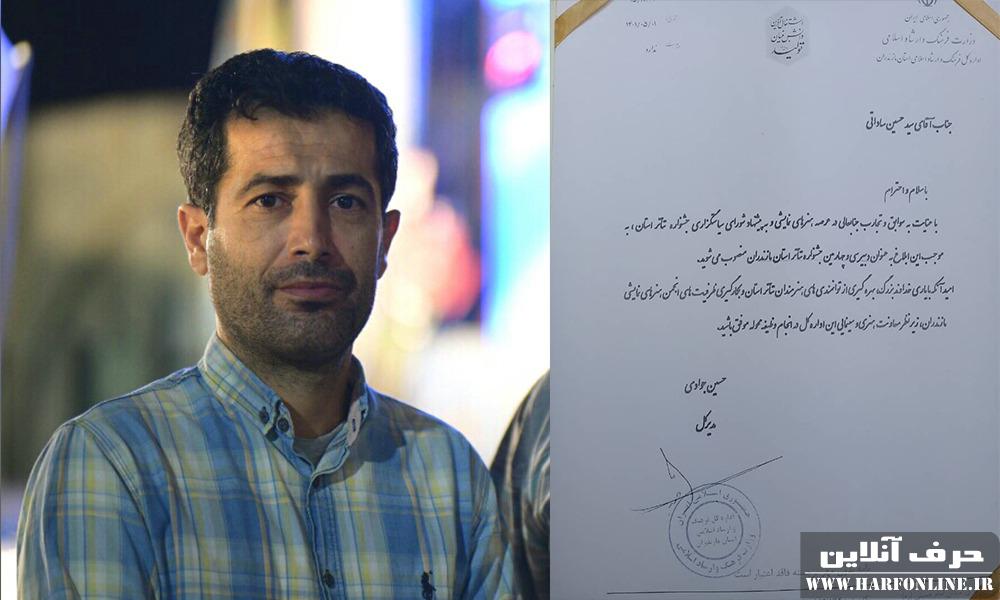 جمهوری اسلامی ایران
وزارت فرهنگ و ارشاد اسلامی
اداره کل فرهنگ و ارشاد اسلامی استان مازندران
۱۴۰۱/۰۵/۰۱
ندارد
تولید
دانش بنیان
اشتغال آفرین
جناب آقای سید حسین ساداتی
با سلام و احترام
با عنایت به سوابق و تجارب جنابعالی در عرصه هنرهای نمایشی و به پیشنهاد شورای سیاستگزاری جشنواره تئاتر استان، به
موجب این ابلاغ به عنوان دبیر سی و چهارمین جشنواره تئاتر استان مازندران منصوب می شوید.
امید آنکه با یاری خداوند بزرگ، بهره گیری از توانمندی های هنرمندان تئاتر استان و بکارگیری ظرفیت های انجمن هنرهای نمایشی
مازندران، زیر نظر معاونت هنری و سینمایی این اداره کل در انجام وظیفه محوله موفق باشید.
حسین جوادی
مدیرکل
جمهوری اسلامی ایران
اداره کل فرهنگ
و ارشاد اسلامی
استان مازندران
وزارت فرهنگ و ارشاد اسلامی
فاقد اعتبار است
حرف آنلاین
WWW.HARFONLINE.IR